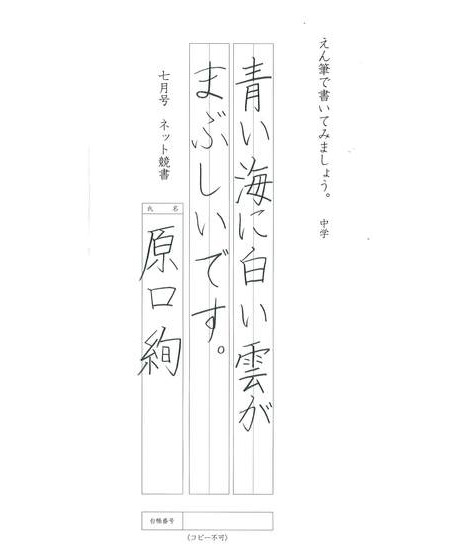 えん筆で書いてみましょう。 中学
青い海に白い雲が
まぶしいです。
七月号 ネット競書
氏名
原口絢
台帳番号
（コピー不可）